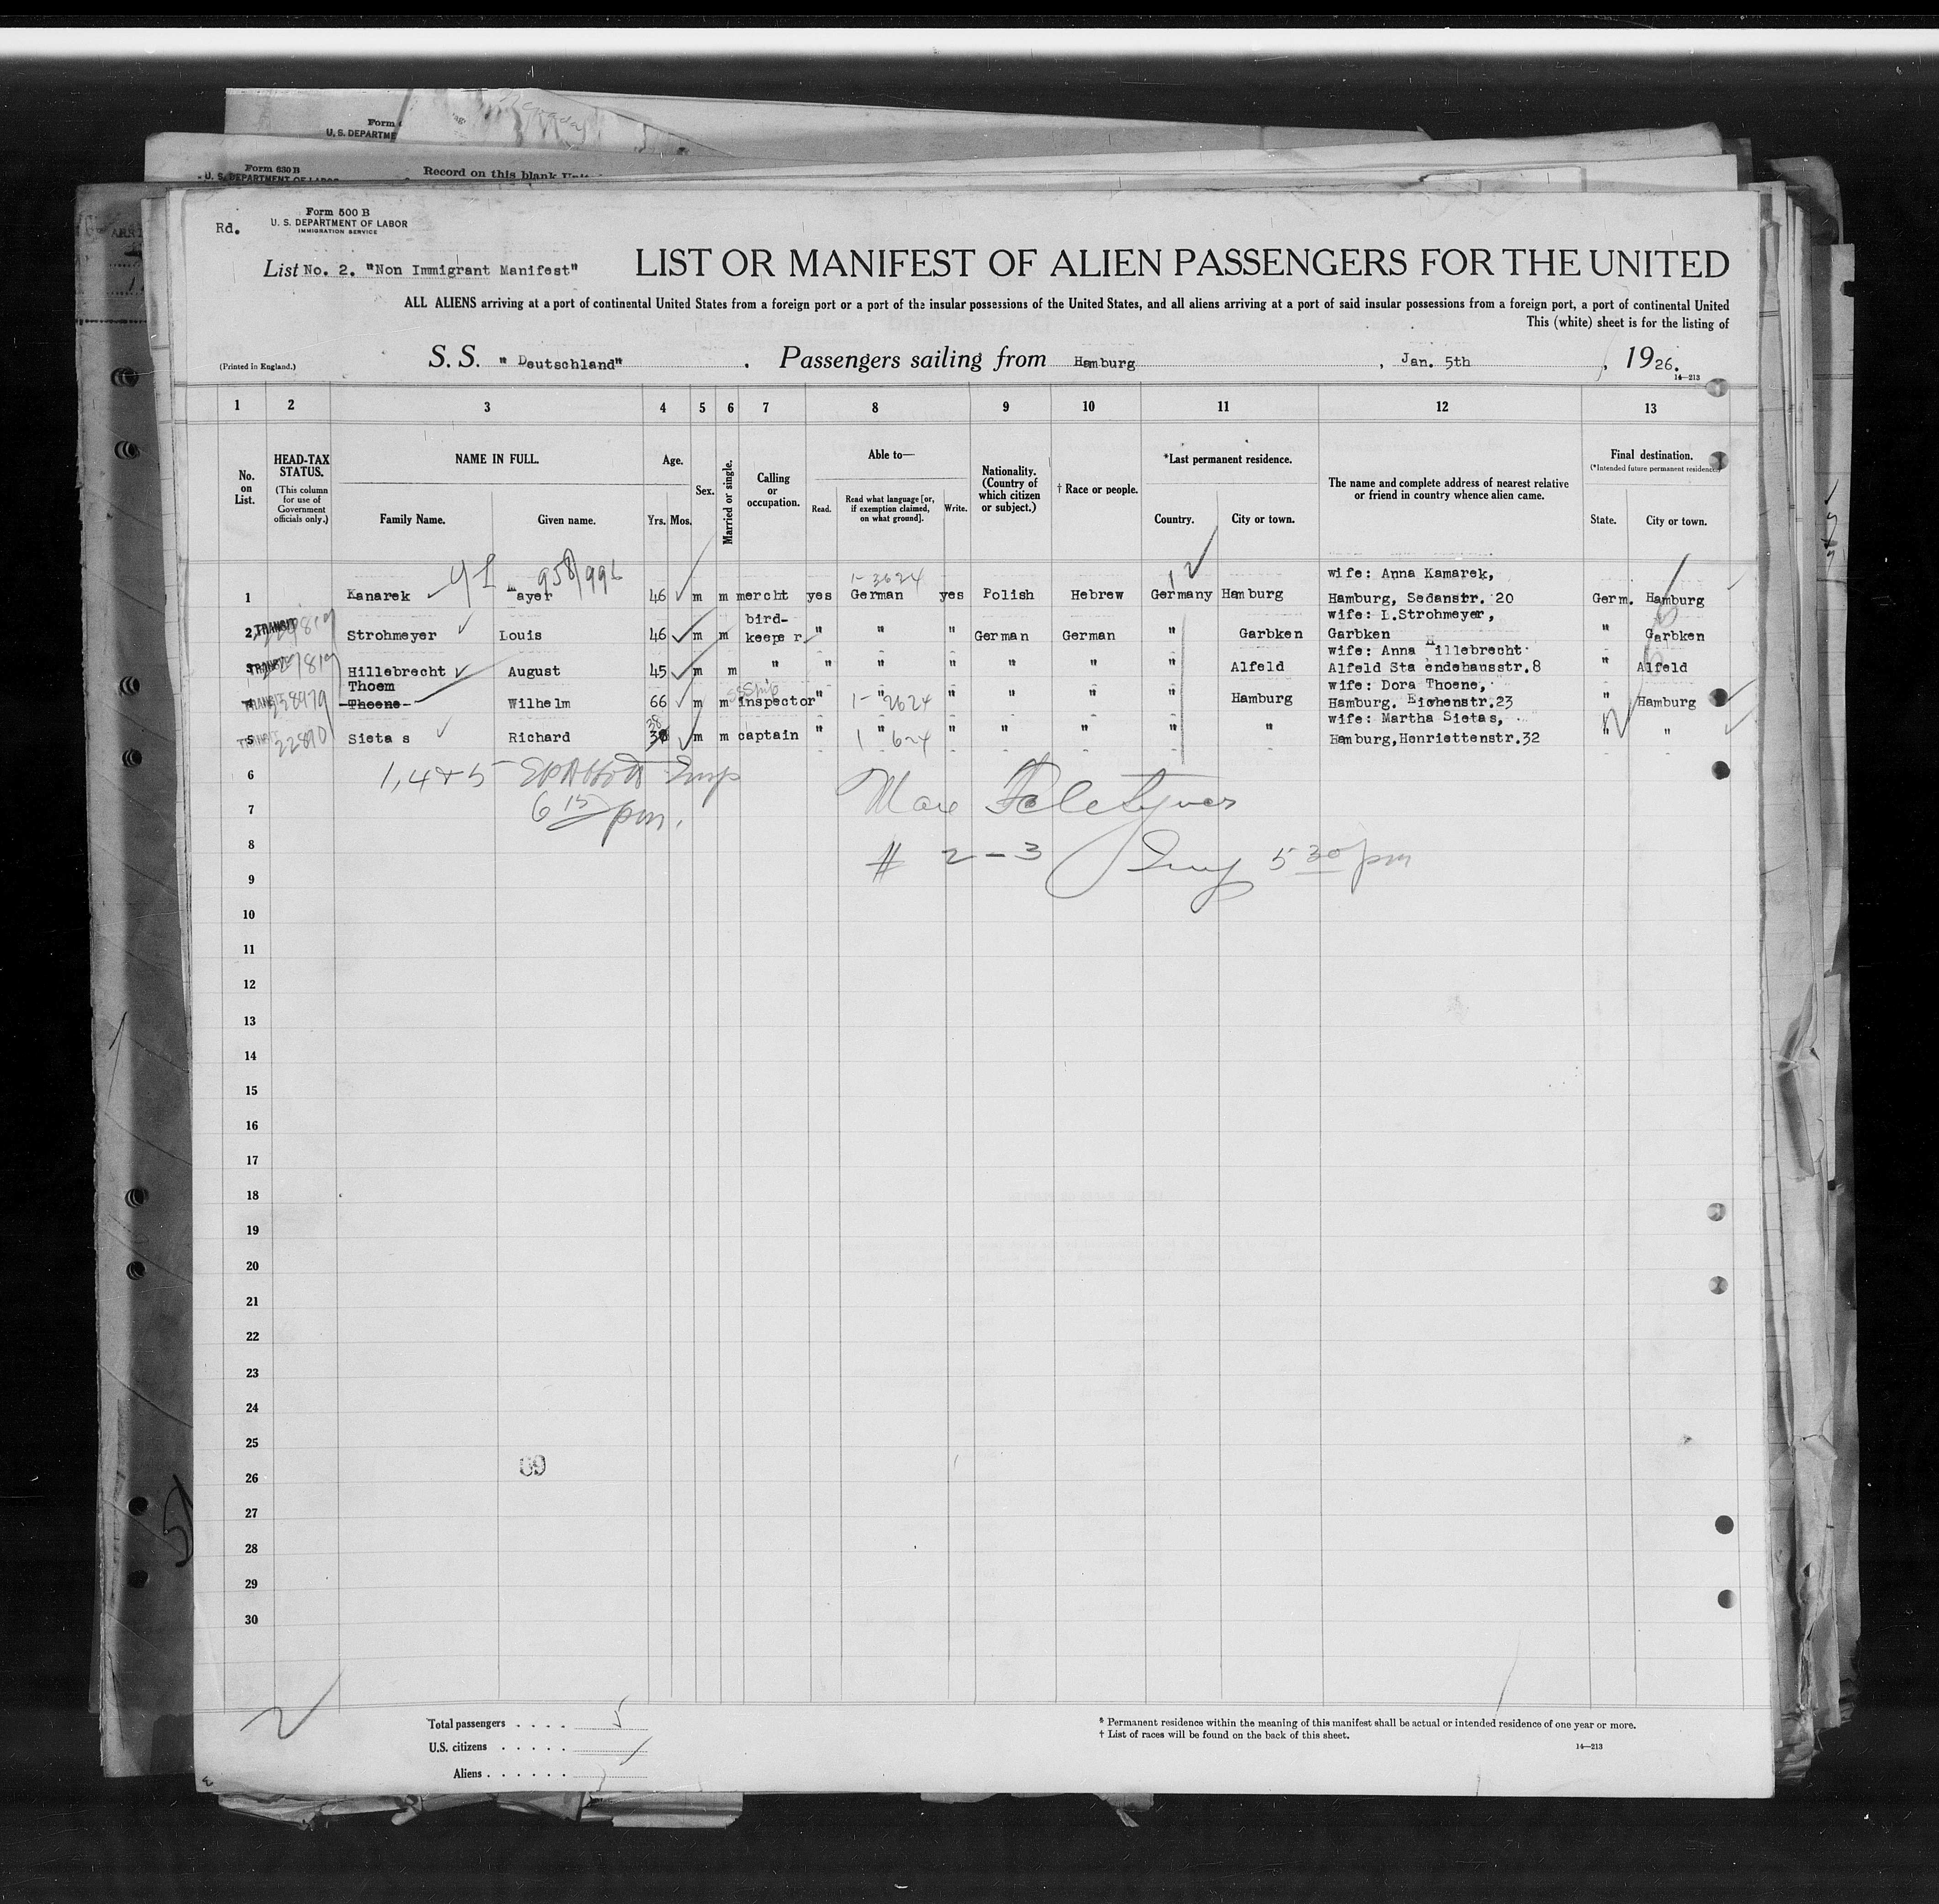 Form
U. S. DEPARTME
Form 630 B
U. S. DEPARTMENT OF LABOR
Record on this blank
Rd.
Form 500 B
U. S. DEPARTMENT OF LABOR
IMMIGRATION SERVICE
List No. 2. "Non Immigrant Manifest"
LIST OR MANIFEST OF ALIEN PASSENGERS FOR THE UNITED
ALL ALIENS arriving at a port of continental United States from a foreign port or a port of the insular possessions of the United States, and all aliens arriving at a port of said insular possessions from a foreign port, a port of continental United
This (white) sheet is for the listing of
(Printed in England.)
S. S. "Deutschland". Passengers sailing from Hamburg, Jan. 5th, 1926.
14—213
1 2 3 4 5 6 7 8 9 10 11 12 13
No. on List.
HEAD-TAX STATUS.
(This column for use of Government officials only.)
NAME IN FULL.
Family Name. Given name.
Age.
Yrs. Mos.
Sex.
Married or single.
Calling or occupation.
Able to—
Read. Read what language [or, if exemption claimed, on what ground]. Write.
Nationality. (Country of which citizen or subject.)
† Race or people.
*Last permanent residence.
Country. City or town.
The name and complete address of nearest relative or friend in country whence alien came.
Final destination.
(*Intended future permanent residence.)
State. City or town.
958/996
1-3624
wife: Anna Kamarek,
1 Kanarek Mayer 46 m m mercht yes German yes Polish Hebrew Germany Hamburg Hamburg, Sedanstr. 20 Germ. Hamburg
bird- wife: L.Strohmeyer,
2 TRANSIT Strohmeyer Louis 46 m m keeper " " " German German " Garbken Garbken " Garbken
wife: Anna Hillebrecht
3 TRANSIT Hillebrecht August 45 m m " " " " " " " Alfeld Alfeld Sta endehausstr.8 " Alfeld
Thoem wife: Dora Thoene,
4 TRANSIT Thoene Wilhelm 66 m m inspector " " " " " " Hamburg Hamburg. Eichenstr.23 " Hamburg
1-2624
38 wife: Martha Sietas,
5 TRANSIT 22890 Sietas Richard m m captain " " " " " " " Hamburg,Henriettenstr.32 " "
1 624
6 1, 4 + 5 Insp
7 6 15 pm. Max
8 # 2-3 Insp 5 30 pm
9
10
11
12
13
14
15
16
17
18
19
20
21
22
23
24
25
26
69
27
28
29
30
Total passengers . . . . 5
U.S. citizens . . . . .
Aliens . . . . . .
* Permanent residence within the meaning of this manifest shall be actual or intended residence of one year or more.
† List of races will be found on the back of this sheet.
14—213